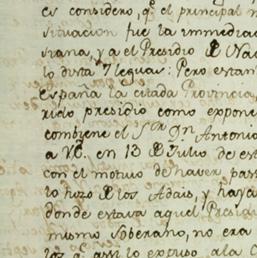 es considero, q.e el principal m
situacion fue la immedia
siana, y a el Presidio de Nac
lo dista 7 leguas: Pero estan
españa la citada Provincia
rido presidio como expone
combiene el S.or D.n Antonio
a V.E. en 13 de Julio de est
con el motivo de haver pass
lo hizo de los Adais, y haya
donde estava aquel Presid
mismo Soberano, no era
los q.e assi lo expuso a la C